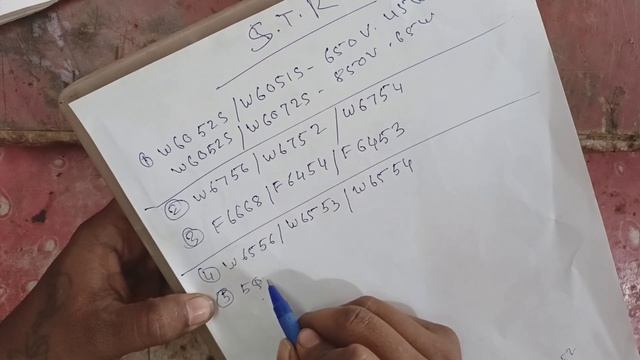 S.T.R
① W6052S/W6051S- 650V. 45W
W6052S/W6072S- 850V. 65W
② W6756/W6752/W6754
③ F6668/F6454/F6453
④ W6556/W6553/W6554
⑤